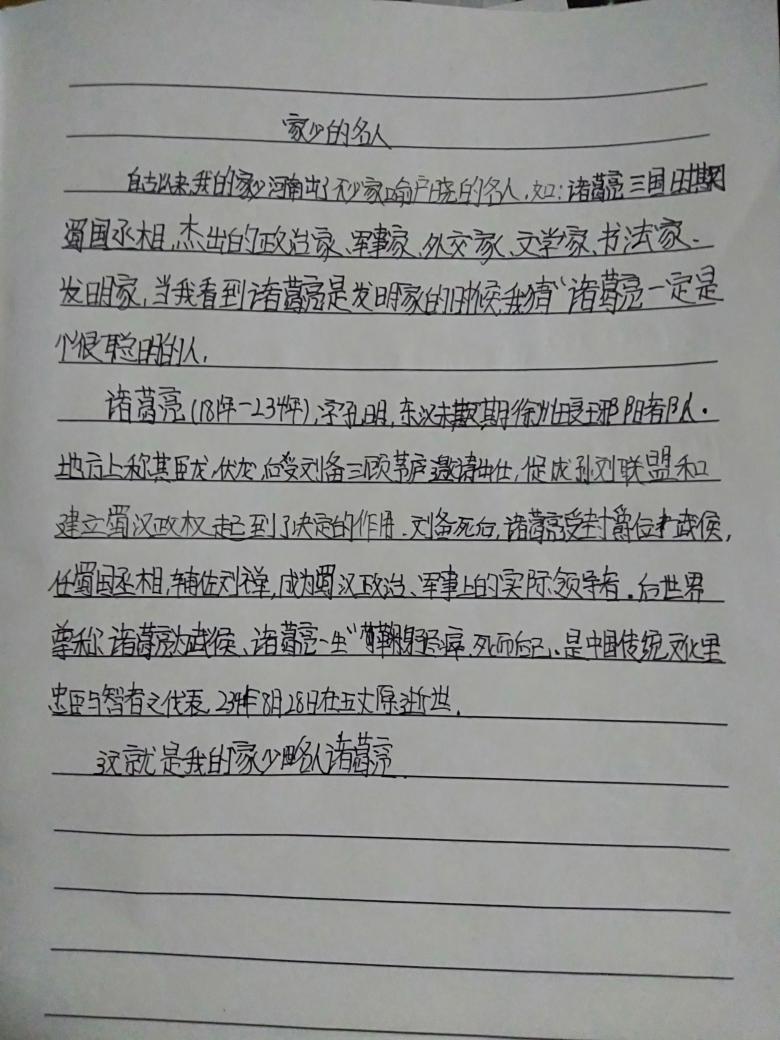 家乡的名人
自古以来,我的家乡河南出了不少家喻户晓的名人,如:诸葛亮三国时期
蜀国丞相,杰出的政治家、军事家、外交家、文学家、书法家、
发明家,当我看到诸葛亮是发明家的时候,我猜“诸葛亮一定是
个很聪明的人.
诸葛亮(181年—234年),字孔明,东汉末期徐州琅玡阳都人.
地方上称其卧龙、伏龙,后受刘备三顾茅庐邀请出仕,促成孙刘联盟和
建立蜀汉政权起到了决定的作用.刘备死后,诸葛亮受封爵位武侯,
任蜀国丞相,辅佐刘禅,成为蜀汉政治、军事上的实际领导者.后世界
尊称诸葛亮为武侯、诸葛亮一生“鞠躬尽瘁,死而后已”.是中国传统文化里
忠臣与智者之代表.234年8月28日在五丈原逝世.
这就是我的家乡名人诸葛亮.